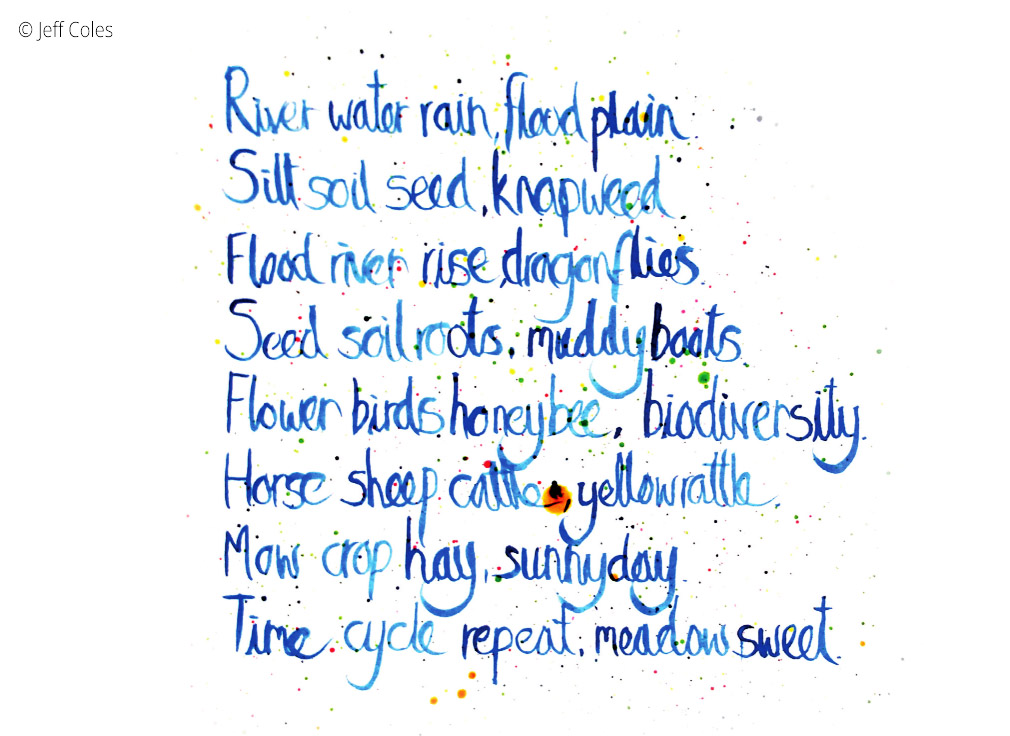 © Jeff Coles
River water rain, flood plain.
Silt soil seed, knapweed
Flood river rise, dragonflies.
Seed soil roots, muddy boots.
Flower birds honey bee, biodiversity.
Horse sheep cattle, yellow rattle.
Mow crop hay, sunny day.
Time cycle repeat, meadowsweet.